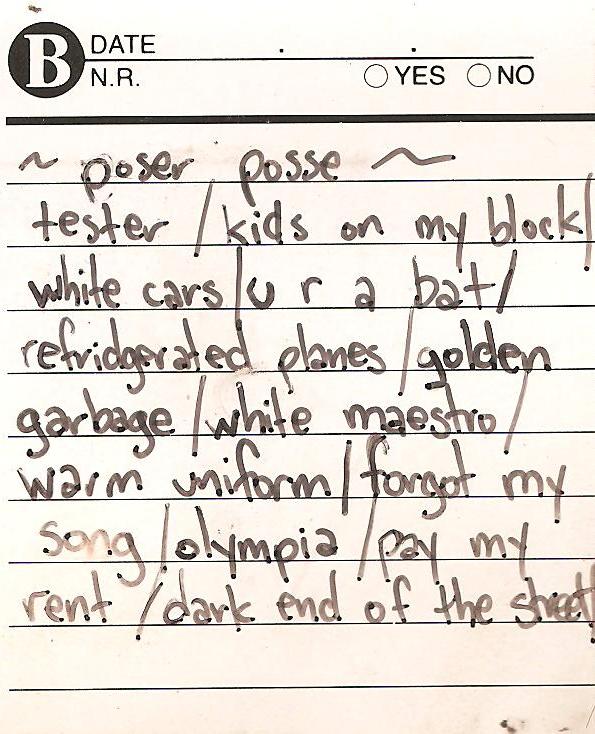 B DATE
N.R. YES NO
~ poser posse ~
tester / kids on my block /
white cars / u r a bat /
refridgerated planes / golden
garbage / white maestro /
warm uniform / forgot my
song / olympia / pay my
rent / dark end of the street /